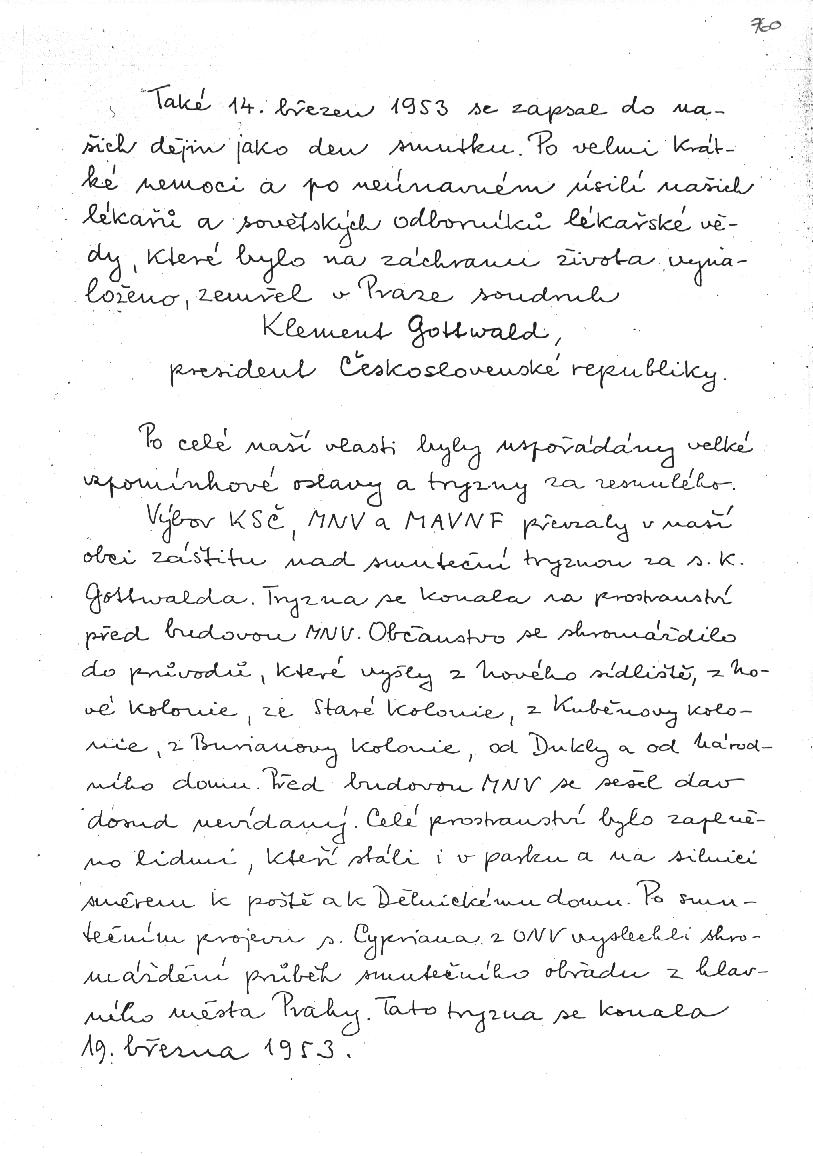 760
Také 14. březen 1953 se zapsal do na-
šich dějin jako den smutku. Po velmi krát-
ké nemoci a po neúnavném úsilí našich
lékařů a sovětských odborníků lékařské vě-
dy, které bylo na záchranu života vyna-
loženo, zemřel v Praze soudruh
Klement Gottwald,
president Československé republiky.
Po celé naší vlasti byly uspořádány velké
vzpomínkové oslavy a tryzny za zesnulého.
Výbor KSČ, MNV a MAVNF převzaly v naší
obci záštitu nad smuteční tryznou za s. K.
Gottwalda. Tryzna se konala na prostranství
před budovou MNV. Občanstvo se shromáždilo
do průvodů, které vyšly z nového sídliště, z no-
vé kolonie, ze Staré kolonie, z Kuběnovy kolo-
nie, z Burianovy kolonie, od Dukly a od Národ-
ního domu. Před budovou MNV se sešel dav
dosud nevídaný. Celé prostranství bylo zaplně-
no lidmi, kteří stáli i v parku a na silnici
směrem k poště a k Dělnickému domu. Po smu-
tečním projevu s. Cypriana z ONV vyslechli shro-
máždění průběh smutečního obřadu z hlav-
ního města Prahy. Tato tryzna se konala
19. března 1953.